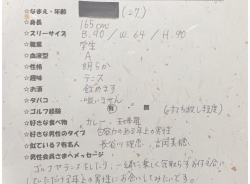 ☆なまえ・年齢 (27)
☆身長 165cm
☆スリーサイズ B.90 / W.64 / H.90
☆職業 学生
☆血液型 A
☆性格 明るい
☆趣味 テニス
☆お酒 飲めます
☆タバコ 吸いません
☆ゴルフ経験 有 (打ちっ放し程度)
☆好きな食べ物 カレー、
☆好きな男性のタイプ 包容力のある年上の男性
☆似ている?有名人 長谷川理恵、吉岡美穂
☆男性会員さまへメッセージ
ゴルフやテニスをしたり、一緒に楽しく気取らずお付き合い
していただける年上の男性にお会いしてみたいです。